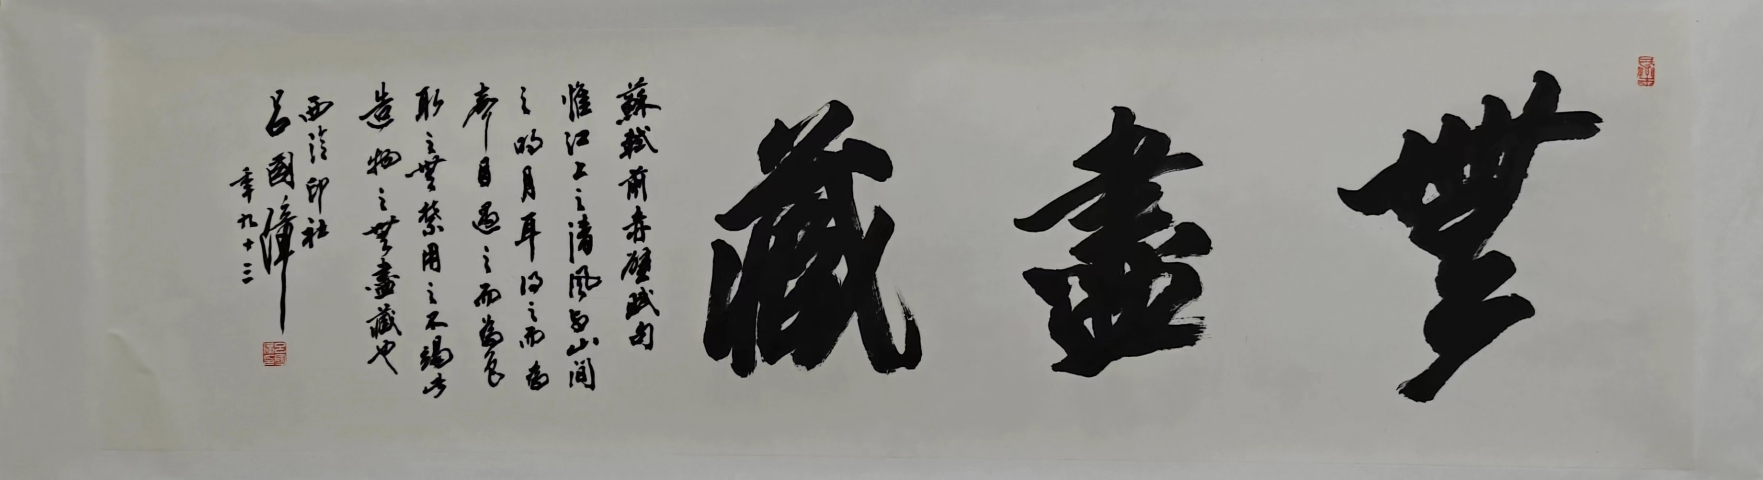 無盡藏
蘇軾前赤壁賦句
惟江上之清風與山間
之明月耳得之而為
聲目遇之而為色
取之無禁用之不竭此
造物之無盡藏也
西泠印社
呂國璋
年九十三